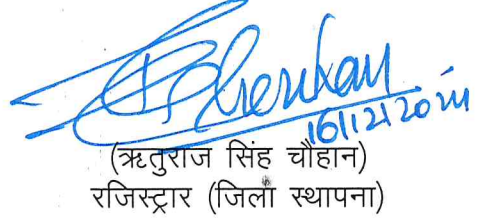 16/12/2024
(ऋतुराज सिंह चौहान)
रजिस्ट्रार (जिला स्थापना)